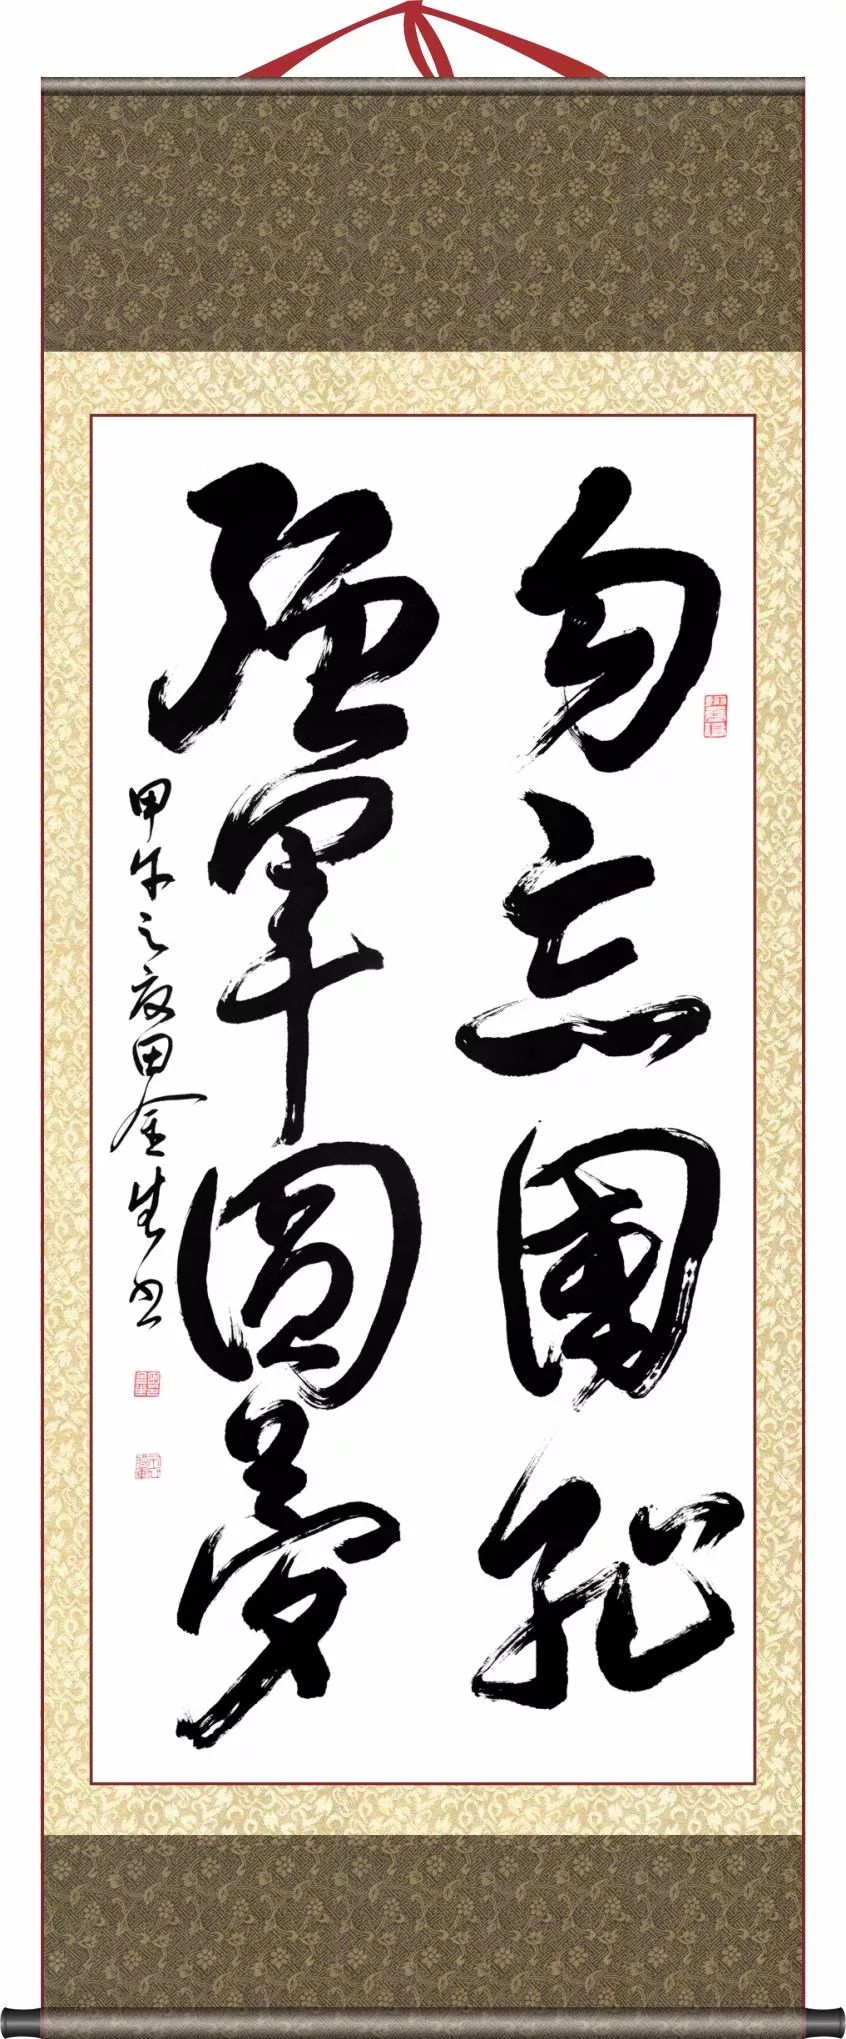 勿忘國恥
強軍圓夢
甲午之夜田金生書